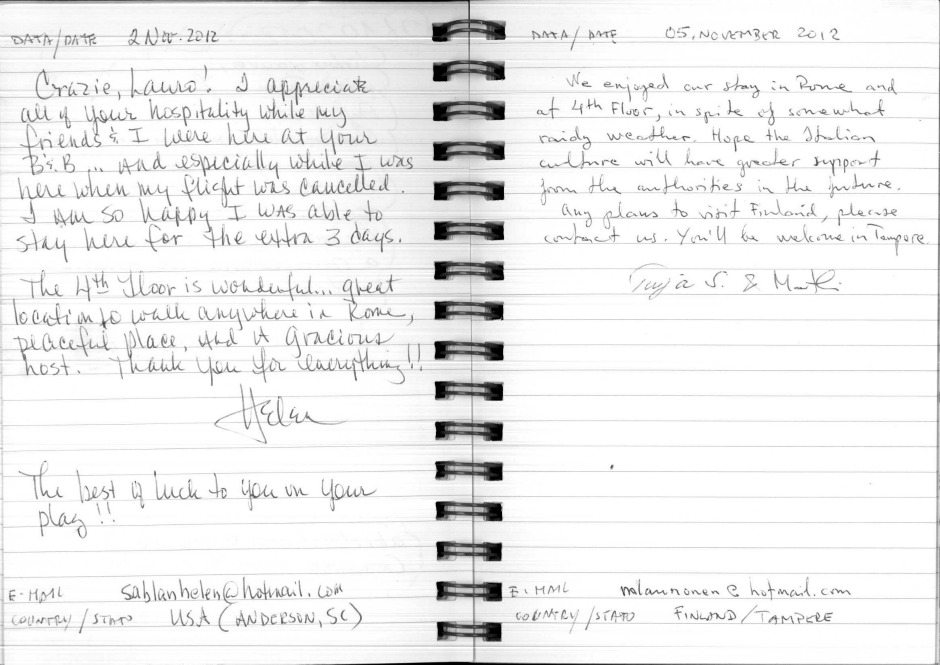 DATA/DATE 2 Nov. 2012
Grazie, Lauro! I appreciate
all of your hospitality while my
friends & I were here at your
B&B... and especially while I was
here when my flight was cancelled.
I am so happy I was able to
stay here for the extra 3 days.
The 4th Floor is wonderful... great
location to walk anywhere in Rome,
peaceful place, and a gracious
host. Thank you for everything!!
Helen
The best of luck to you in your
play!!
E-MAIL sablanhelen@hotmail.com
COUNTRY/STATO USA (ANDERSON, SC)
DATA/DATE 05, NOVEMBER 2012
We enjoyed our stay in Rome and
at 4th Floor, in spite of somewhat
raidy weather. Hope the Italian
culture will have greater support
from the authorities in the future.
Any plans to visit Finland, please
contact us. You'll be welcome in Tampere.
S. &
E-MAIL mlaurronen@hotmail.com
COUNTRY/STATO FINLAND/TAMPERE